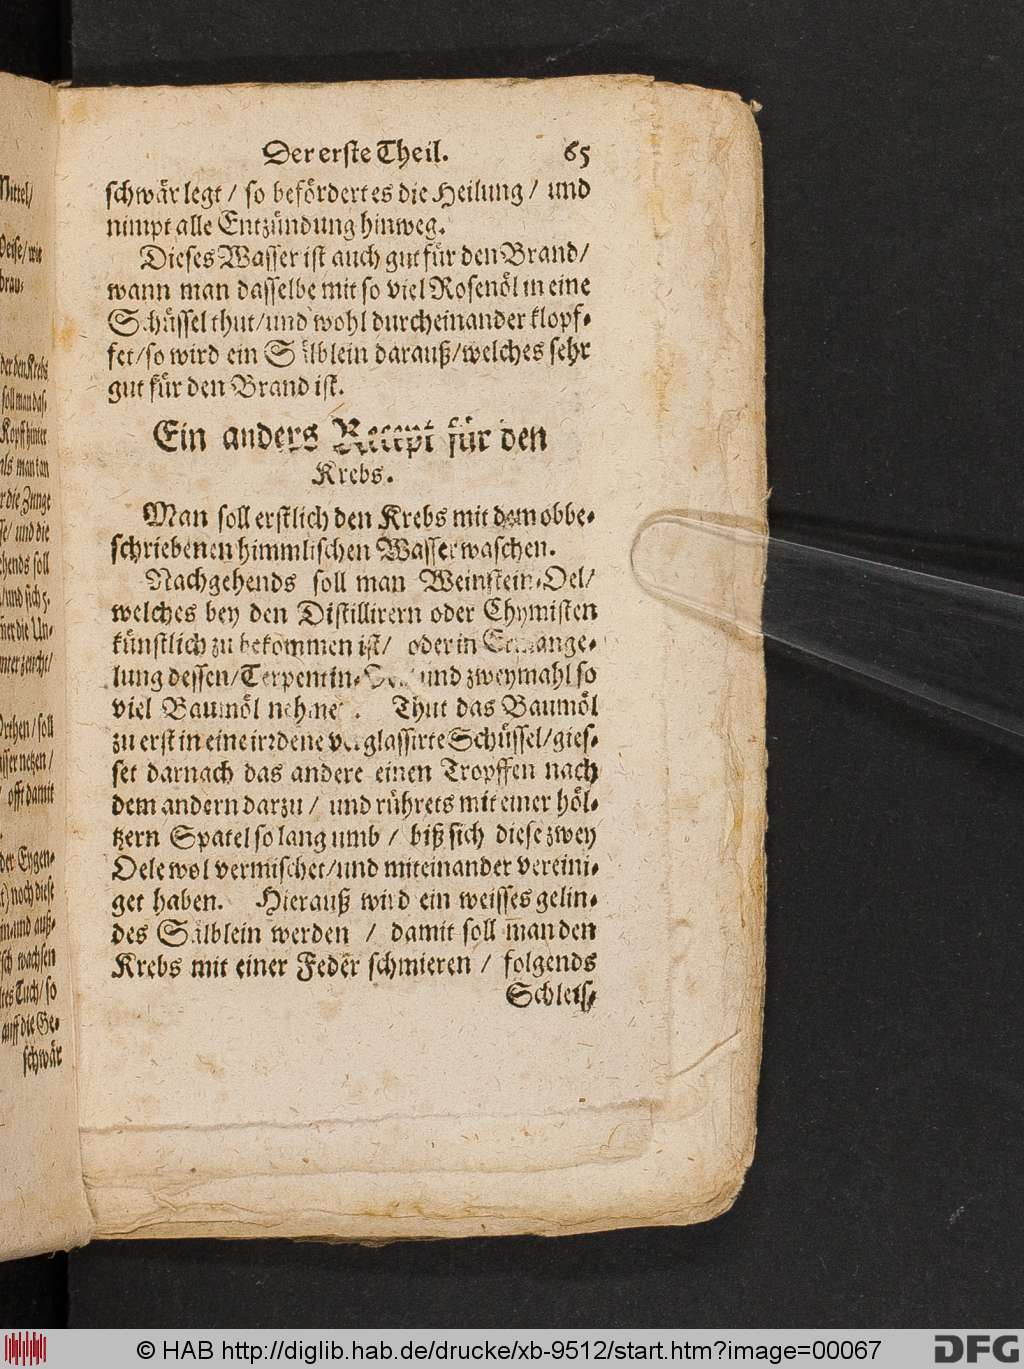 Der erste Theil. 65
schwär legt / so befördert es die Heilung / und
nimpt alle Entzündung hinweg.
Dieses Wasser ist auch gut für den Brand /
wann man dasselbe mit so viel Rosenöl in eine
Schüssel thut / und wohl durcheinander klopf-
fet / so wird ein Sälblein darauß / welches sehr
gut für den Brand ist.
Ein anders Recept für den
Krebs.
Man soll erstlich den Krebs mit dem obbe-
schriebenen himmlischen Wasser waschen.
Nachgehends soll man Weinstein-Oel /
welches bey den Distillirern oder Chymisten
künstlich zu bekommen ist / oder in Ermange-
lung dessen / Terpentin- und zweymahl so
viel Baumöl nehmen. Thut das Baumöl
zu erst in eine irrdene verglassirte Schüssel / gies-
set darnach das andere einen Tropffen nach
dem andern darzu / und rührets mit einer höl-
tzern Spatel so lang umb / biß sich diese zwey
Oele wol vermischet / und miteinander vereini-
get haben. Hierauß wird ein weisses gelin-
des Sälblein werden / damit soll man den
Krebs mit einer Feder schmieren / folgends
Schleis-
Mittel /
der den Krebs
soll man das-
Kopff hinter
man kan
die Zunge
und die
soll
die Un-
soll
netzen /
offt damit
der Eygen-
noch diese
und auß-
wachsen
Tuch / so
auff die Ge-
schwär
© HAB http://diglib.hab.de/drucke/xb-9512/start.htm?image=00067
DFG